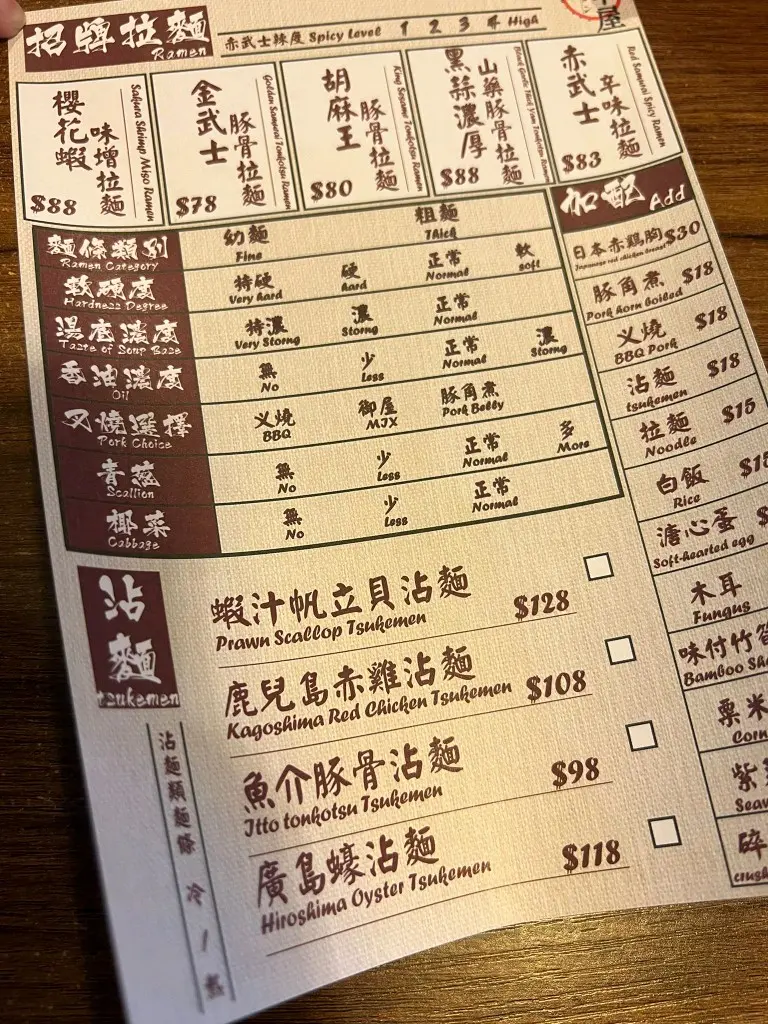 招牌拉麵
Ramen
赤武士辣度 Spicy Level 1 2 3 4 High
屋
櫻花蝦
味增拉麵
Sakura Shrimp Miso Ramen
$88
金武士
豚骨拉麵
Golden Samurai Tonkotsu Ramen
$78
胡麻王
豚骨拉麵
King Sesame Tonkotsu Ramen
$80
黑蒜濃厚
山藥豚骨拉麵
$88
赤武士
辛味拉麵
Red Samurai Spicy Ramen
$83
麵條類別
Ramen Category
幼麵
Fine
粗麵
Thick
軟硬度
Hardness Degree
特硬
Very hard
硬
hard
正常
Normal
軟
soft
湯底濃度
Taste of Soup Base
特濃
Very Storng
濃
Storng
正常
Normal
香油濃度
Oil
無
No
少
Less
正常
Normal
濃
Storng
叉燒選擇
Pork Choice
叉燒
BBQ
御屋
MIX
豚角煮
Pork Belly
青蔥
Scallion
無
No
少
Less
正常
Normal
多
More
椰菜
Cabbage
無
No
少
Less
正常
Normal
加配 Add
日本赤鷄胸 $30
Japanese red chicken breast
豚角煮 $18
Pork horn boiled
叉燒 $18
BBQ Pork
沾麵 $18
tsukemen
拉麵 $15
Noodle
白飯
Rice
溏心蛋
Soft-hearted egg
木耳
Fungus
味付竹
Bamboo
粟米
Corn
紫
碎
沾麵
tsukemen
沾麵類麵條 冷 / 熱
蝦汁帆立貝沾麵
Prawn Scallop Tsukemen
$128
鹿兒島赤雞沾麵
Kagoshima Red Chicken Tsukemen
$108
魚介豚骨沾麵
Itto tonkotsu Tsukemen
$98
廣島蠔沾麵
Hiroshima Oyster Tsukemen
$118